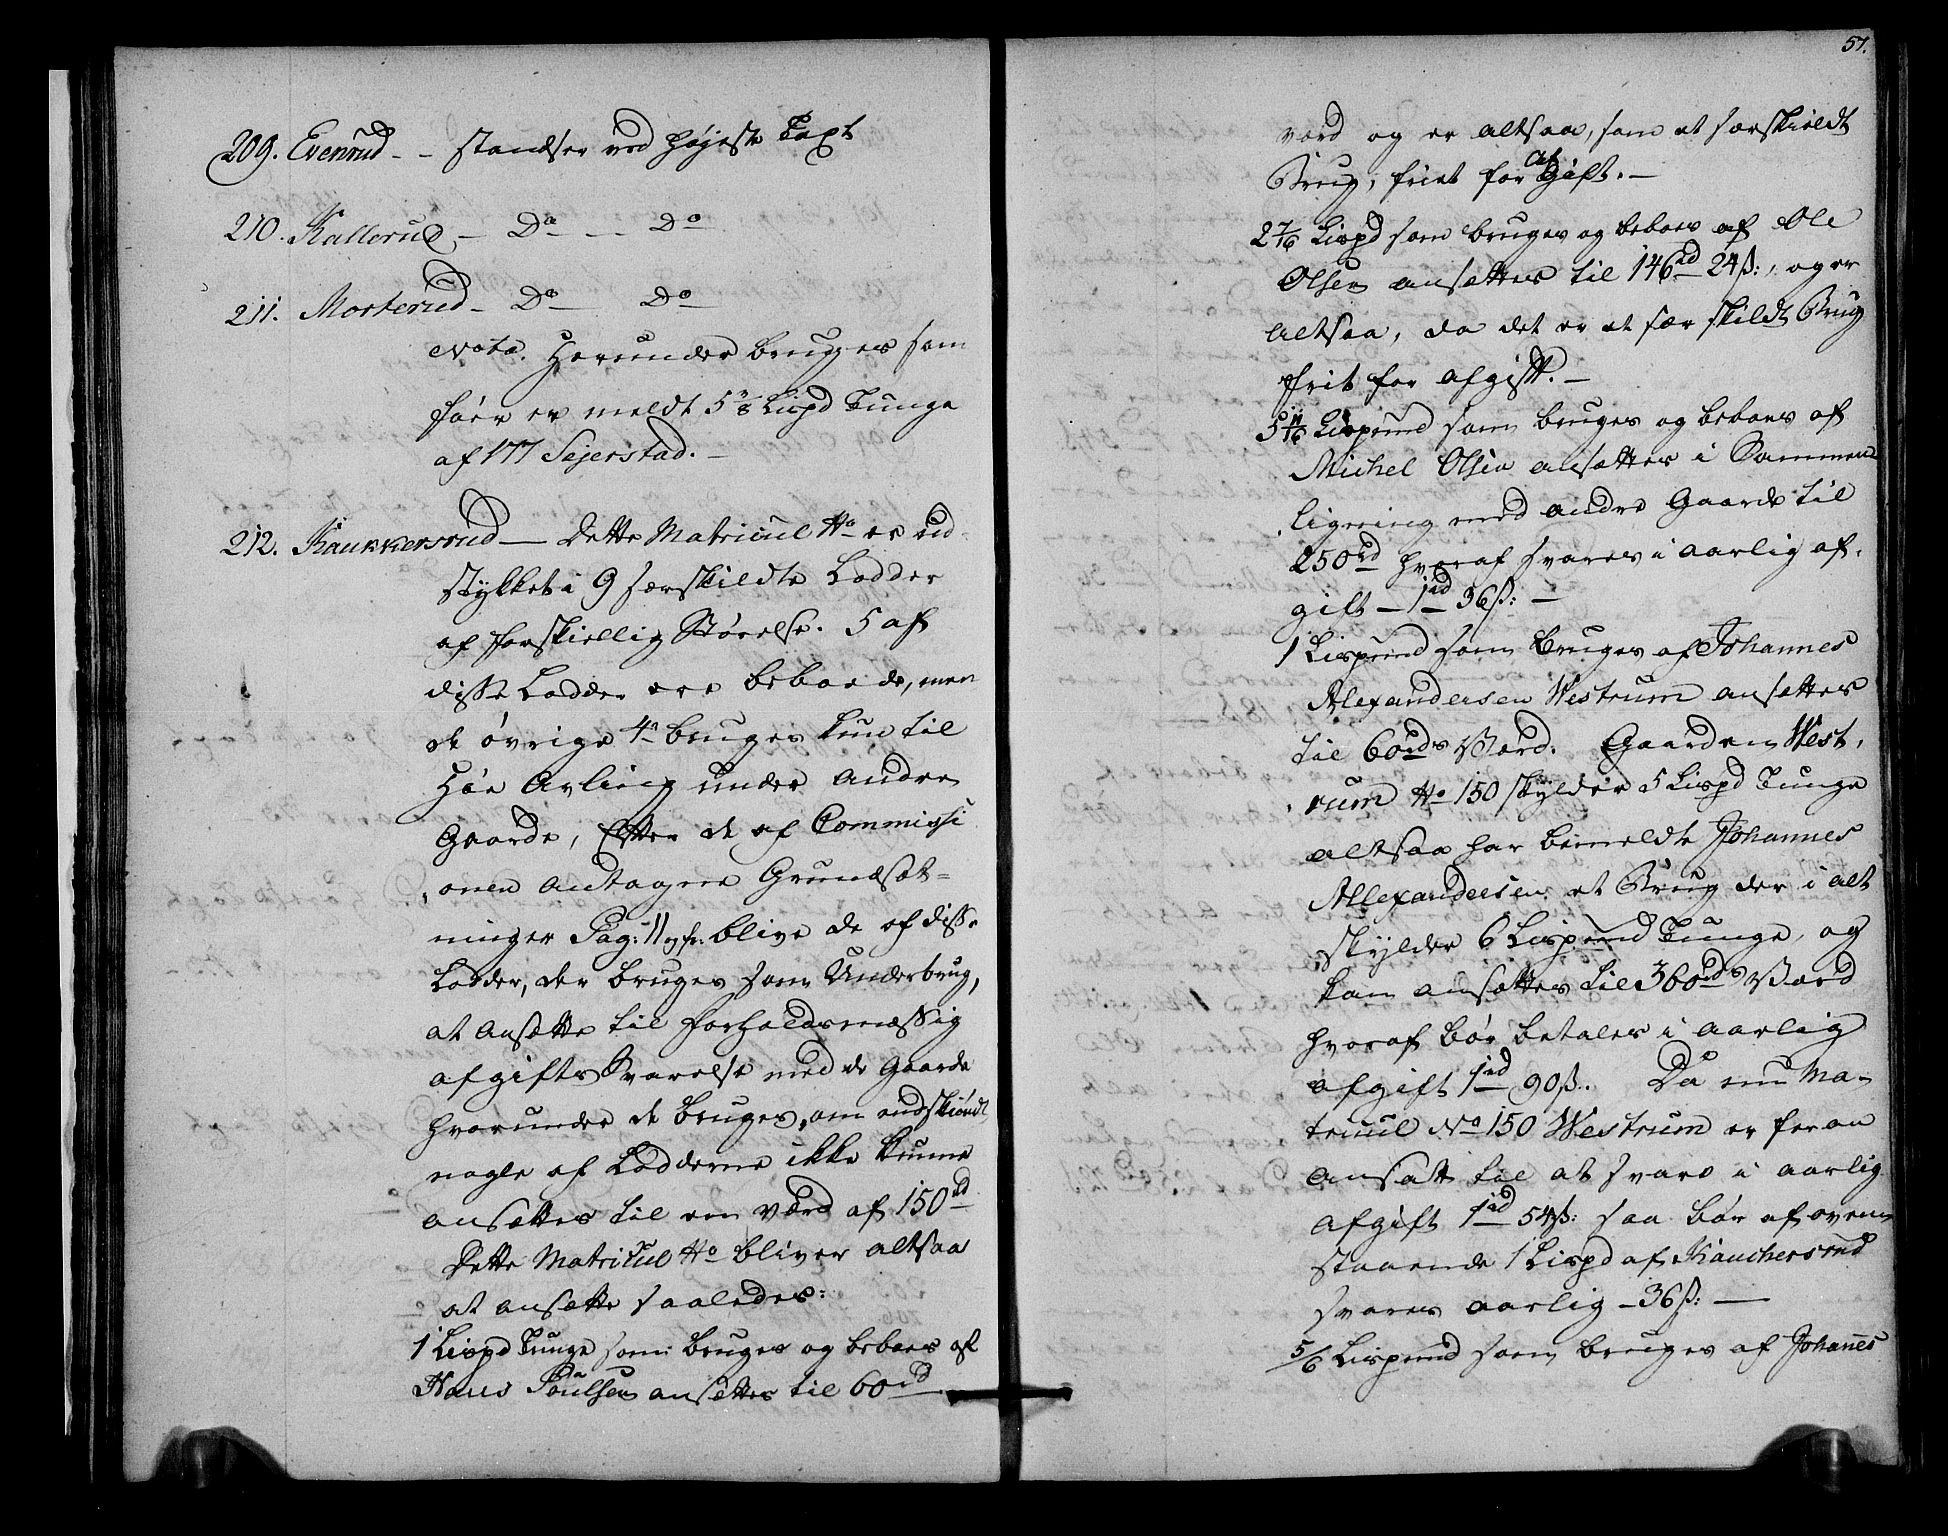 209. Evenrud - - standser ved højeste Taxt
210. Kallerud, - Do - - Do
211. Morterud - Do - Do
Nota. Herunder bruges som
føer er meldt 5 3/8 Lispd Tunge
af 177 Sejerstad. -
212. Kaukkersrud - Dette Matricul No er ud-
stykket i 9 særskildte Lodder
af forskiellig Størelse. 5 af
disse Lodder ere beboede, men
de øvrige 4re bruges kun til
Høe Avling under andre
Gaarde, Efter de af Commissi
onen antagne Grundsæt=
ninger Pag: 11 blive de af disse
Lodder, der bruges som Underbrug,
at ansætte til forholdsmæssig
afgifts Svarelse med de Gaarde
hvorunder de bruges, om endskiøndt
nogle af Lodderne ikke kunne
ansættes til en værd af 150 rd
Dette Matricul No bliver altsaa
at ansætte saaledes:
1 Lispd Tunge som bruges og beboes af
Hans Poulsen ansættes til 60 rd
57.
værd og er altsaa, som et særskieldt
Brug, friet for Afgift. -
2 7/16 Lispd som bruges og beboes af Ole
Olsen ansættes til 146 rd 24 ß:, og er
altsaa, da det er et sær skildt Brug
frit for afgift. -
5 11/16 Lispund som bruges og beboes af
Michel Olsen ansættes i Sammen
ligning med andre Gaarde til
250 rd hvoraf svares i aarlig af-
gift - 1 rd 36 ß: -
1 Lispund som bruges af Johannes
Alexandersen Westrum ansættes
til 60 rds Værd. Gaarden West-
rum No 150 skylder 5 Lispd Tunge
altsaa har bemeldte Johannes
Allexandersen et Brug der i alt
skylder 6 Lispund Tunge, og
kan ansættes til 360 rds Værd
hvoraf bør betales i aarlig
afgift 1 rd 90 ß. Da nu Ma-
tricul No 150 Westrum er foran
ansatt til at svare i aarlig
afgift 1 rd 54 ß: saa bør af oven
staaende 1 Lispd af Kauchersrud
svares aarlig - 36 ß: -
5/6 Lispund som bruges af Johannes